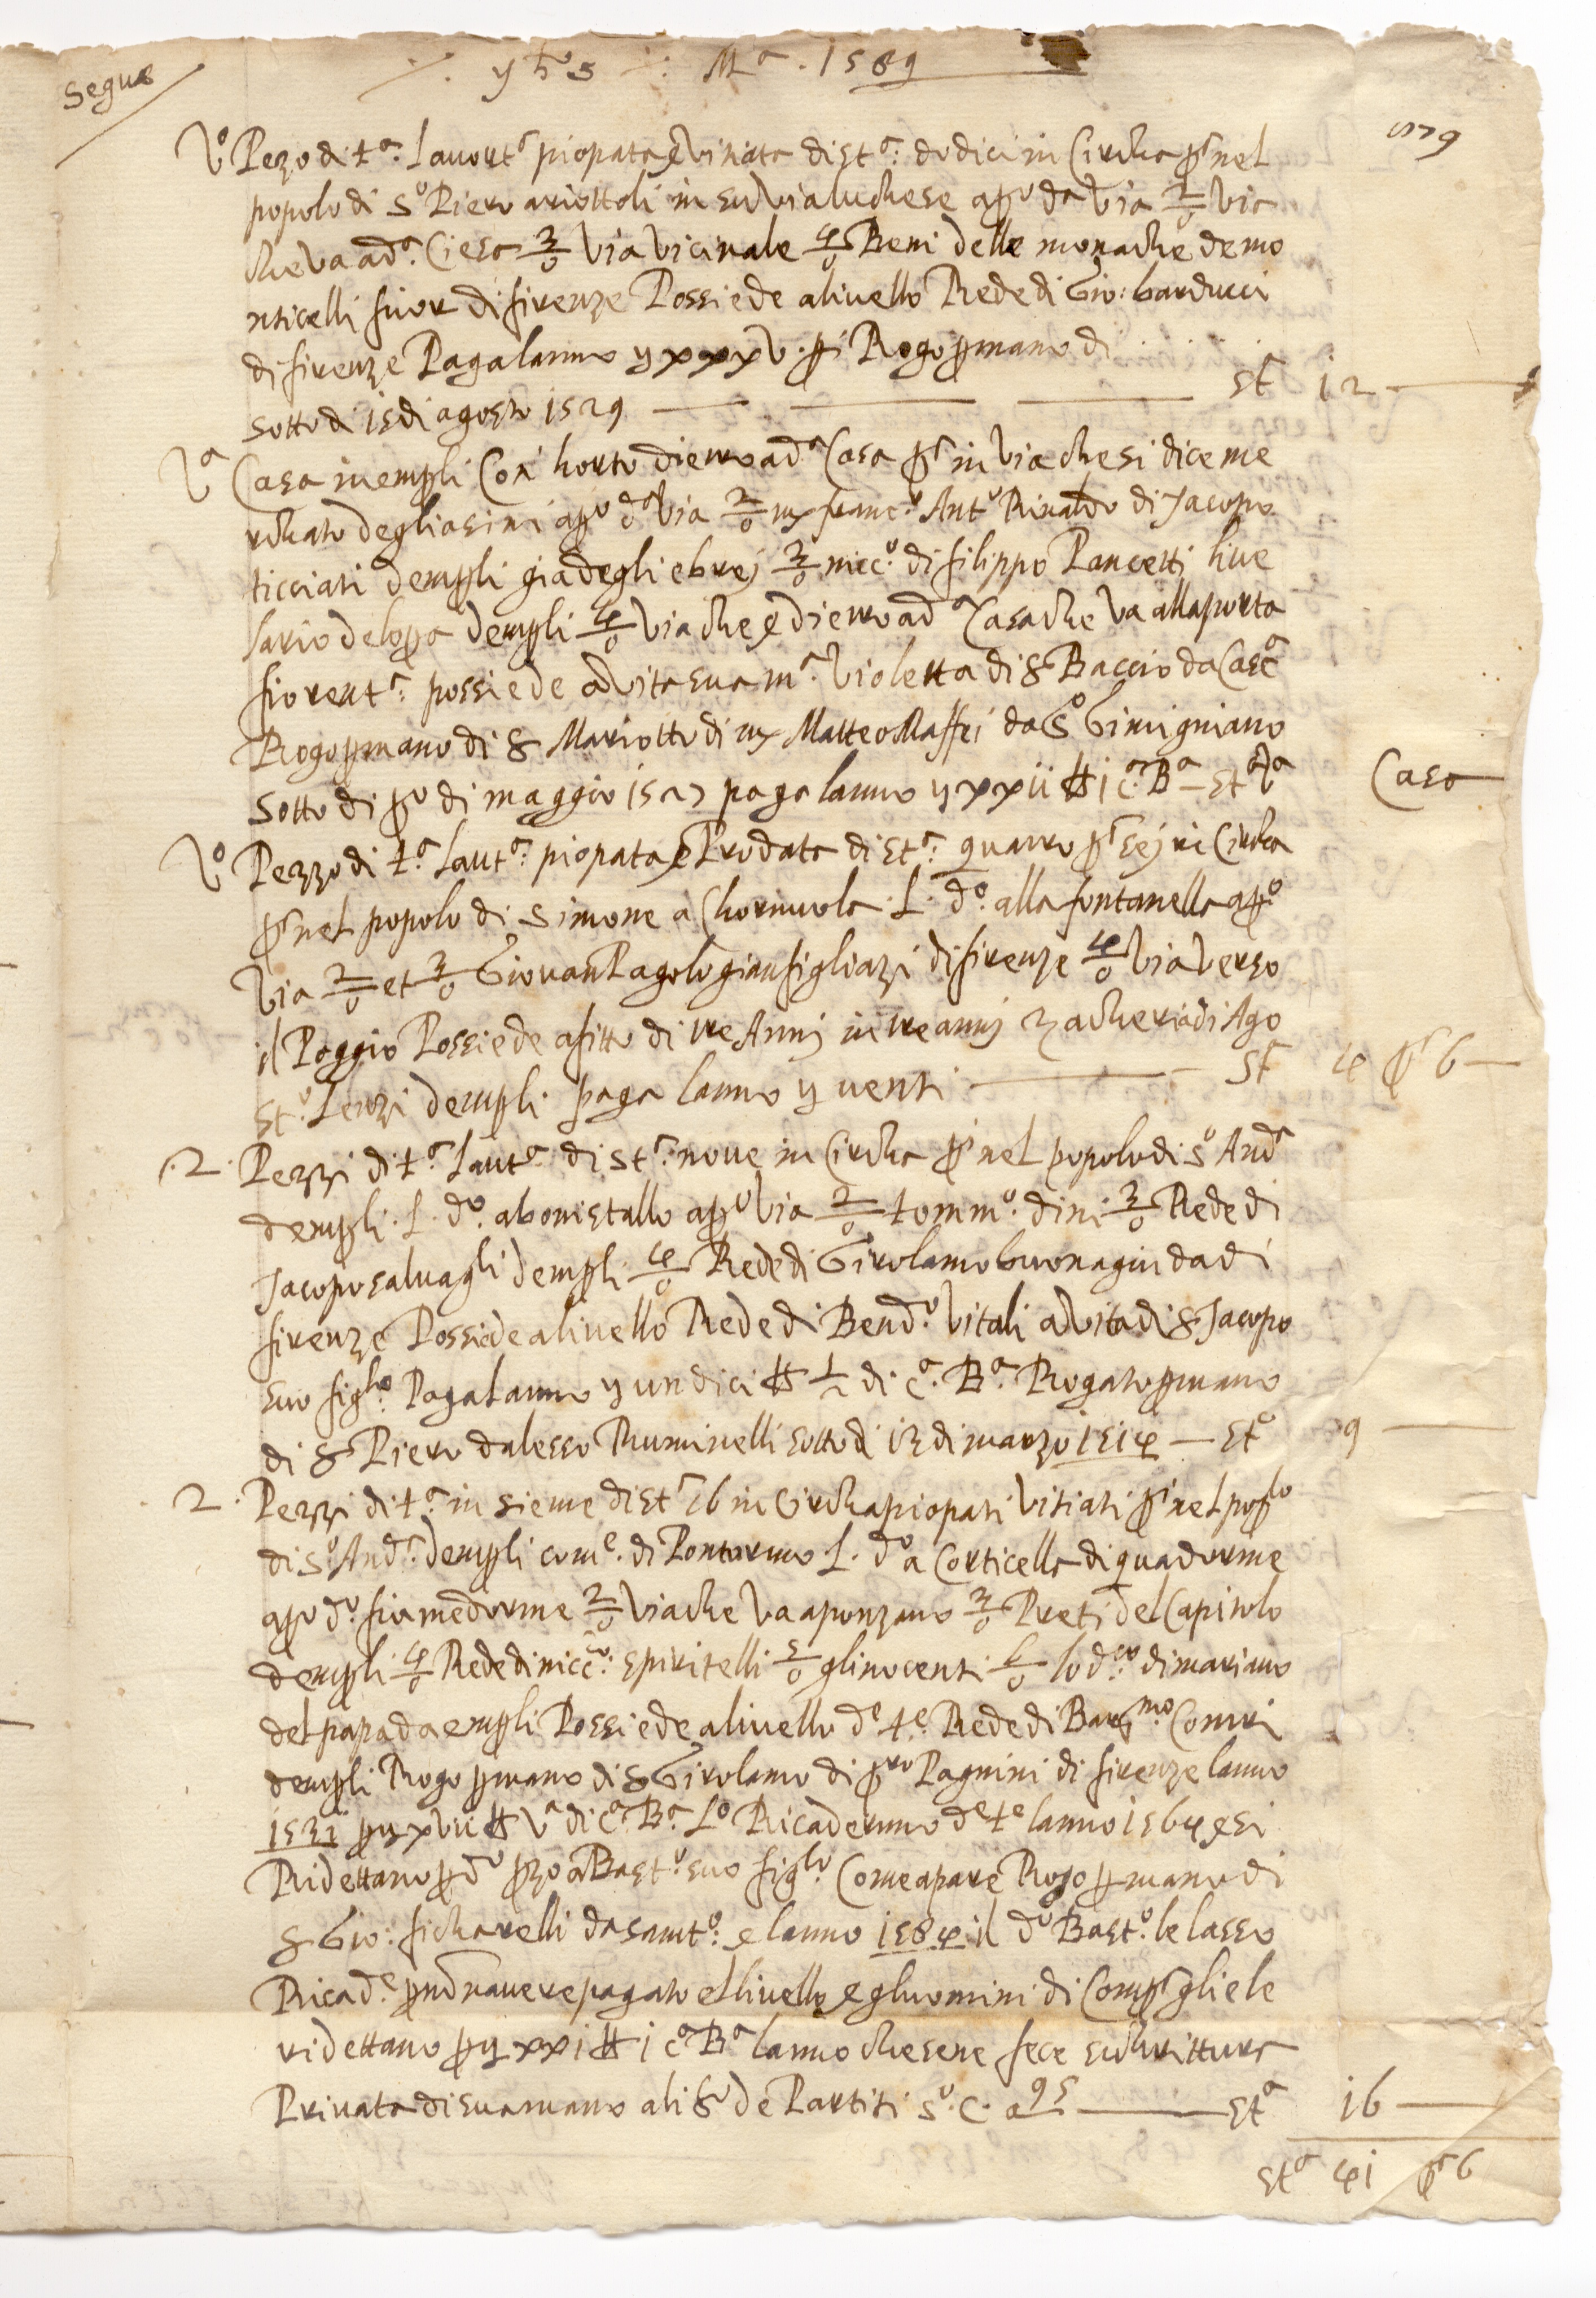 Segue
yħs Mª. 1589
579
Vº Pezo di tª. lavortª piopata e vinata di stª: dodici in Circha pª nel
popolo di Sº Piero ariottoli in su via luchese apº dª Via 2/0 Via
che va ad.ª Ciesa 3/0 Via Vicinale 4/0 Beni delle monache de mo
nticelli fuor di firenze Possiede a livello Rede di Gio: barducci
di firenze Paga lanno y xxxv. Rogo p mano di
sotto di 15 di agosto 1529 stª 12
Vª Casa in empli Con horto dietro adª Casa pª in Via che si dice me
rchato degli asini apº dª Via 2/0 franc.º Antº Rinaldo di Jacopo
ticciati dempli gia degli ebrej 3/0 nicc.º di filippo Pancetti live
lario de lopª dempli 4/0 Via che e dietro adª Casa che va alla porta
fiorentª: possiede a Vita sua mª. Violetta di S Baccio da Cascª
Rogo p mano di S Mariotto di Matteo Maffei da Sº Gimigniano
sotto di pº di maggio 1527 paga lanno y xxii # i cª. Bª — stª Vª Casa
Vº Pezzo di tª. lavtª: piopata e Prodata di stª: quatro pª sej in Circha
pª nel popolo di Simone a Chornuola. L. dº. alla fontanella apº
Via 2/0 et 3/0 Giovan Pagolo gianfigliazi di firenze 4/0 Via verso
il Poggio Possiede a fitto di tre Annj in tre annj zacheria di Ago
stº. Lenzi dempli. paga lanno y venti — stª 4 pª 6
.2. Pezzi di tª. lavtª. di stª: nove in Circha pª nel popolo di Sº Andª
dempli. L. dº. a bonistallo apº Via 2/0 tomm.º dini 3/0 Rede di
Jacopo salvagli dempli 4/0 Rede di Girolamo buonaguida di
firenze Possiede a livello Rede di Bend.º Vitali a Vita di S Jacopo
suo figlº. Paga lanno y undici # ½ di cª. Bª. Rogato p mano
di S Piero dalesso Ruminelli sotto di 13 di marzo 1514 — stº 9
2. Pezzi di tª. in sieme di stª 16 in Circha piopati Vitiati pª nel poplo
di Sº Andª. dempli com.e di Pontormo L. dº a Corticella di quadorme
apº dº. fiume dorme 2/0 Via che va a ponzano 3/0 Preti del Capitolo
dempli 4/0 Rede di nicc.º: spiritelli 5/0 glinocenti 6/0 lod.co di mariano
del papa da empli Possiede a livello dᵉ tᵉ. Rede di Bart.mo Comri
dempli Rogo p mano di S Girolamo di pro Pagnini di firenze lanno
1531 p y xvii # Vª di cª. Bª. Lº Ricaderono dᵉ tᵉ lanno 1564 e si
Ridettano p dº pzo a Bastº. suo figlº. Come apare Rogo p mano di
S Gio: ficharelli da samtº: e lanno 1584 il dº Bastº. le lasso
Ricad.e p no avere pagato el livello e gluomini di Compª gliele
ridettano p y xxi # i cª Bª lanno che sene fece schrittura
Privata di sua mano ali Sº de Partiti sº. C. a 95 — stª 16
stª 41 pª 6